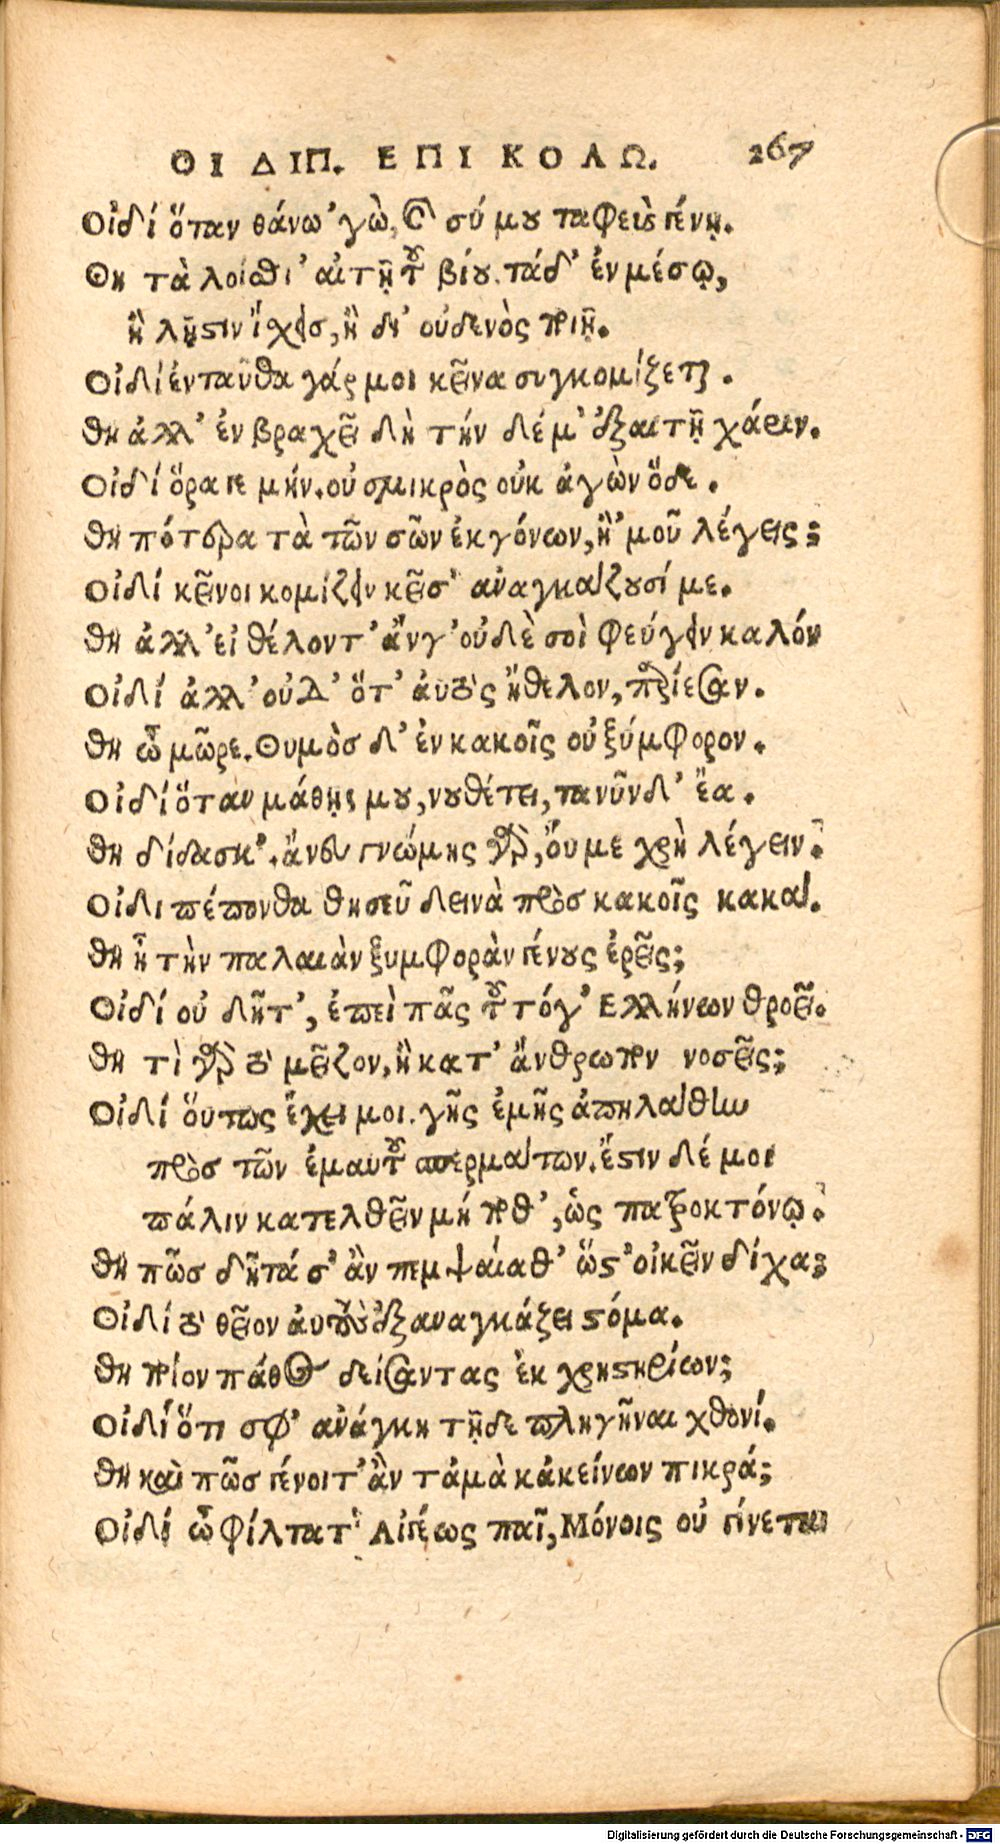 ΟΙ ΔΙΠ. ΕΠΙ ΚΟΛΩ. 267
Οἰδί ὅταν θάνω 'γὼ, καὶ σύ μου ταφεὺς γένῃ.
Θη τὰ λοίσθι' αἰτῇ τοῦ βίου. τάδ' ἐν μέσῳ,
ἢ λῇστιν ἴσχεις, ἢ δι' οὐδενὸς ποιῇ.
Οἰδί ἐνταῦθα γάρ μοι κεῖνα συγκομίζεται.
Θη ἀλλ' ἐν βραχεῖ δὴ τήν δέ μ' ἐξαιτῇ χάριν.
Οἰδί ὅρα γε μήν. οὐ σμικρὸς οὐκ ἀγὼν ὅδε.
Θη πότερα τὰ τῶν σῶν ἐκγόνων, ἢ 'μοῦ λέγεις;
Οἰδί κεῖνοι κομίζειν κεῖσ' ἀναγκάζουσί με.
Θη ἀλλ' εἰ θέλοντ' ἄν γ' οὐδὲ σοὶ φεύγειν καλόν
Οἰδί ἀλλ' οὐδ' ὅτ' αὐτὸς ἤθελον, παρίεσαν.
Θη ὦ μῶρε. θυμὸσ δ' ἐν κακοῖς οὐ ξύμφορον.
Οἰδί ὅταν μάθῃς μου, νουθέτει, τανῦν δ' ἔα.
Θη δίδασκ'. ἄνευ γνώμης γὰρ, ὄυ με χρὴ λέγειν.
Οἰδι πέπονθα θησεῦ δεινὰ πρὸσ κακοῖς κακά.
Θη ἦ τὴν παλαιὰν ξυμφορὰν γένους ἐρεῖς;
Οἰδί οὐ δῆτ', ἐπεὶ πᾶς τοῦτό γ' Ελλήνων θροεῖ.
Θη τὶ γὰρ τὸ μεῖζον, ἢ κατ' ἄνθρωπον νοσεῖς;
Οἰδί ὅυτως ἔχει μοι. γῆς ἐμῆς ἀπηλάθην
πρὸσ τῶν ἐμαυτοῦ σπερμάτων. ἔστιν δέ μοι
πάλιν κατελθεῖν μή ποθ', ὡς πατροκτόνῳ.
Θη πῶσ δῆτά σ' ἂν πεμψαίαθ' ὥστ' οἰκεῖν δίχα;
Οἰδί τὸ θεῖον αὐτοὺς ἐξαναγκάζει στόμα.
Θη ποῖον πάθος δείσαντας ἐκ χρηστηρίων;
Οἰδί ὅτι σφ' ἀνάγκη τῇδε πληγῆναι χθονί.
Θη καὶ πῶσ γένοιτ' ἂν τἀμὰ κἀκείνων πικρά;
Οἰδί ὦ φίλτατ' Αἰγέως παῖ, Μόνοις οὐ γίνεται
Digitalisierung gefördert durch die Deutsche Forschungsgemeinschaft - DFG